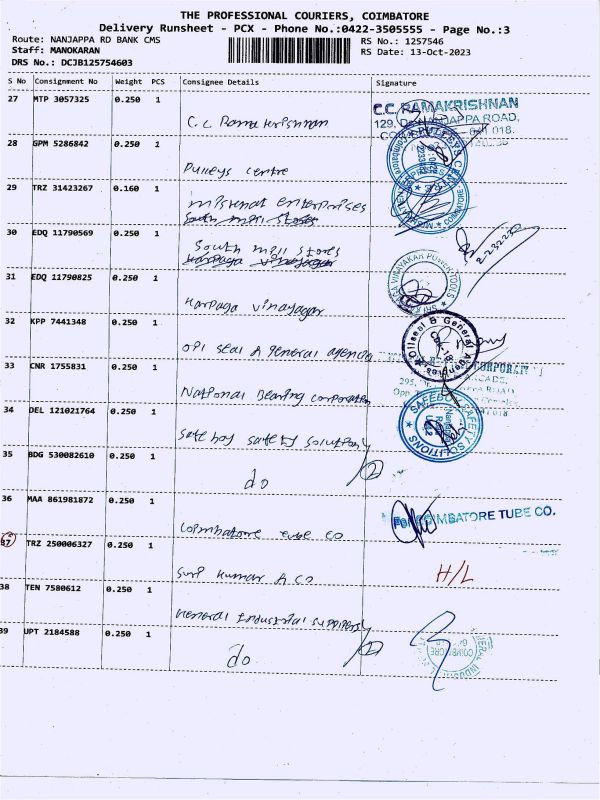 THE PROFESSIONAL COURIERS, COIMBATORE
Delivery Runsheet - PCX - Phone No.:0422-3505555 - Page No.:3
Route: NANJAPPA RD BANK CMS
RS No.: 1257546
Staff: MANOKARAN
RS Date: 13-Oct-2023
DRS No.: DCJB125754603
S No Consignment No Weight PCS Consignee Details Signature
27 MTP 3057325 0.250 1
C.C. RAMAKRISHNAN
C.C Rama Krishnan
28 GPM 5286842 0.250 1
Pulleys Centre
29 TRZ 31423267 0.160 1
enterprises
South mill stores
30 EDQ 11790569 0.250 1
South mill stores
Karpaga Vinayagar
31 EDQ 11790825 0.250 1
Karpaga Vinayagar
32 KPP 7441348 0.250 1
Oil seal & general agencie
33 CNR 1755831 0.250 1
National Bearing corporation
34 DEL 121021764 0.250 1
Safe boy safety solution
35 BDG 530082610 0.250 1
do
2
36 MAA 861981872 0.250 1
For COIMBATORE TUBE CO.
Coimbatore tube co
37 TRZ 250006327 0.250 1
H/L
Kumar & CO
38 TEN 7580612 0.250 1
General Industrial suppliers
39 UPT 2184588 0.250 1
do
2